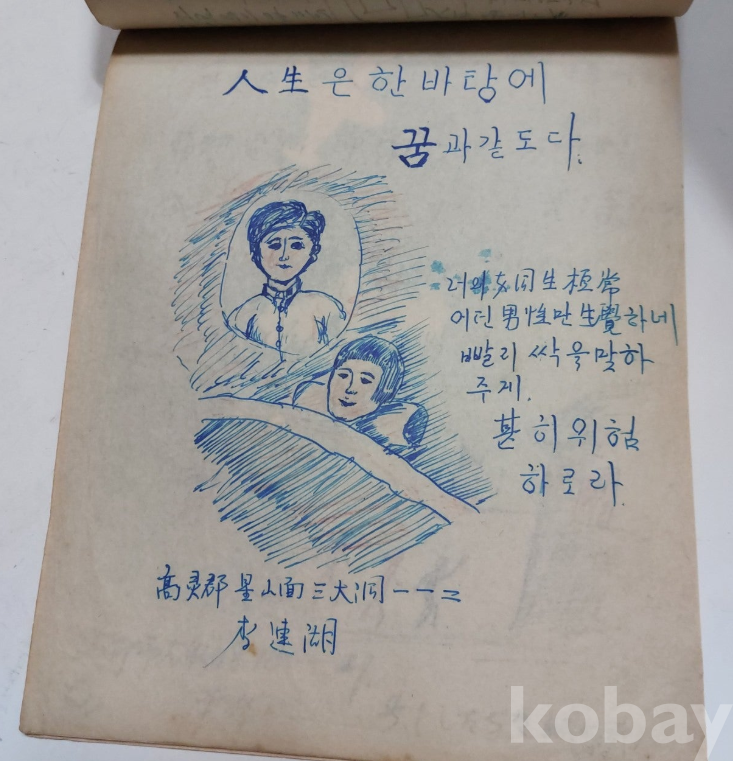 人生은 한바탕에
꿈과같도다.
너의 女同生 極常
어떤 男性만 生覺하네
빨리 싹을맞하
주게.
甚히위험
하로라.
高灵郡 星山面 三大洞 一一二
李連湖
kobay